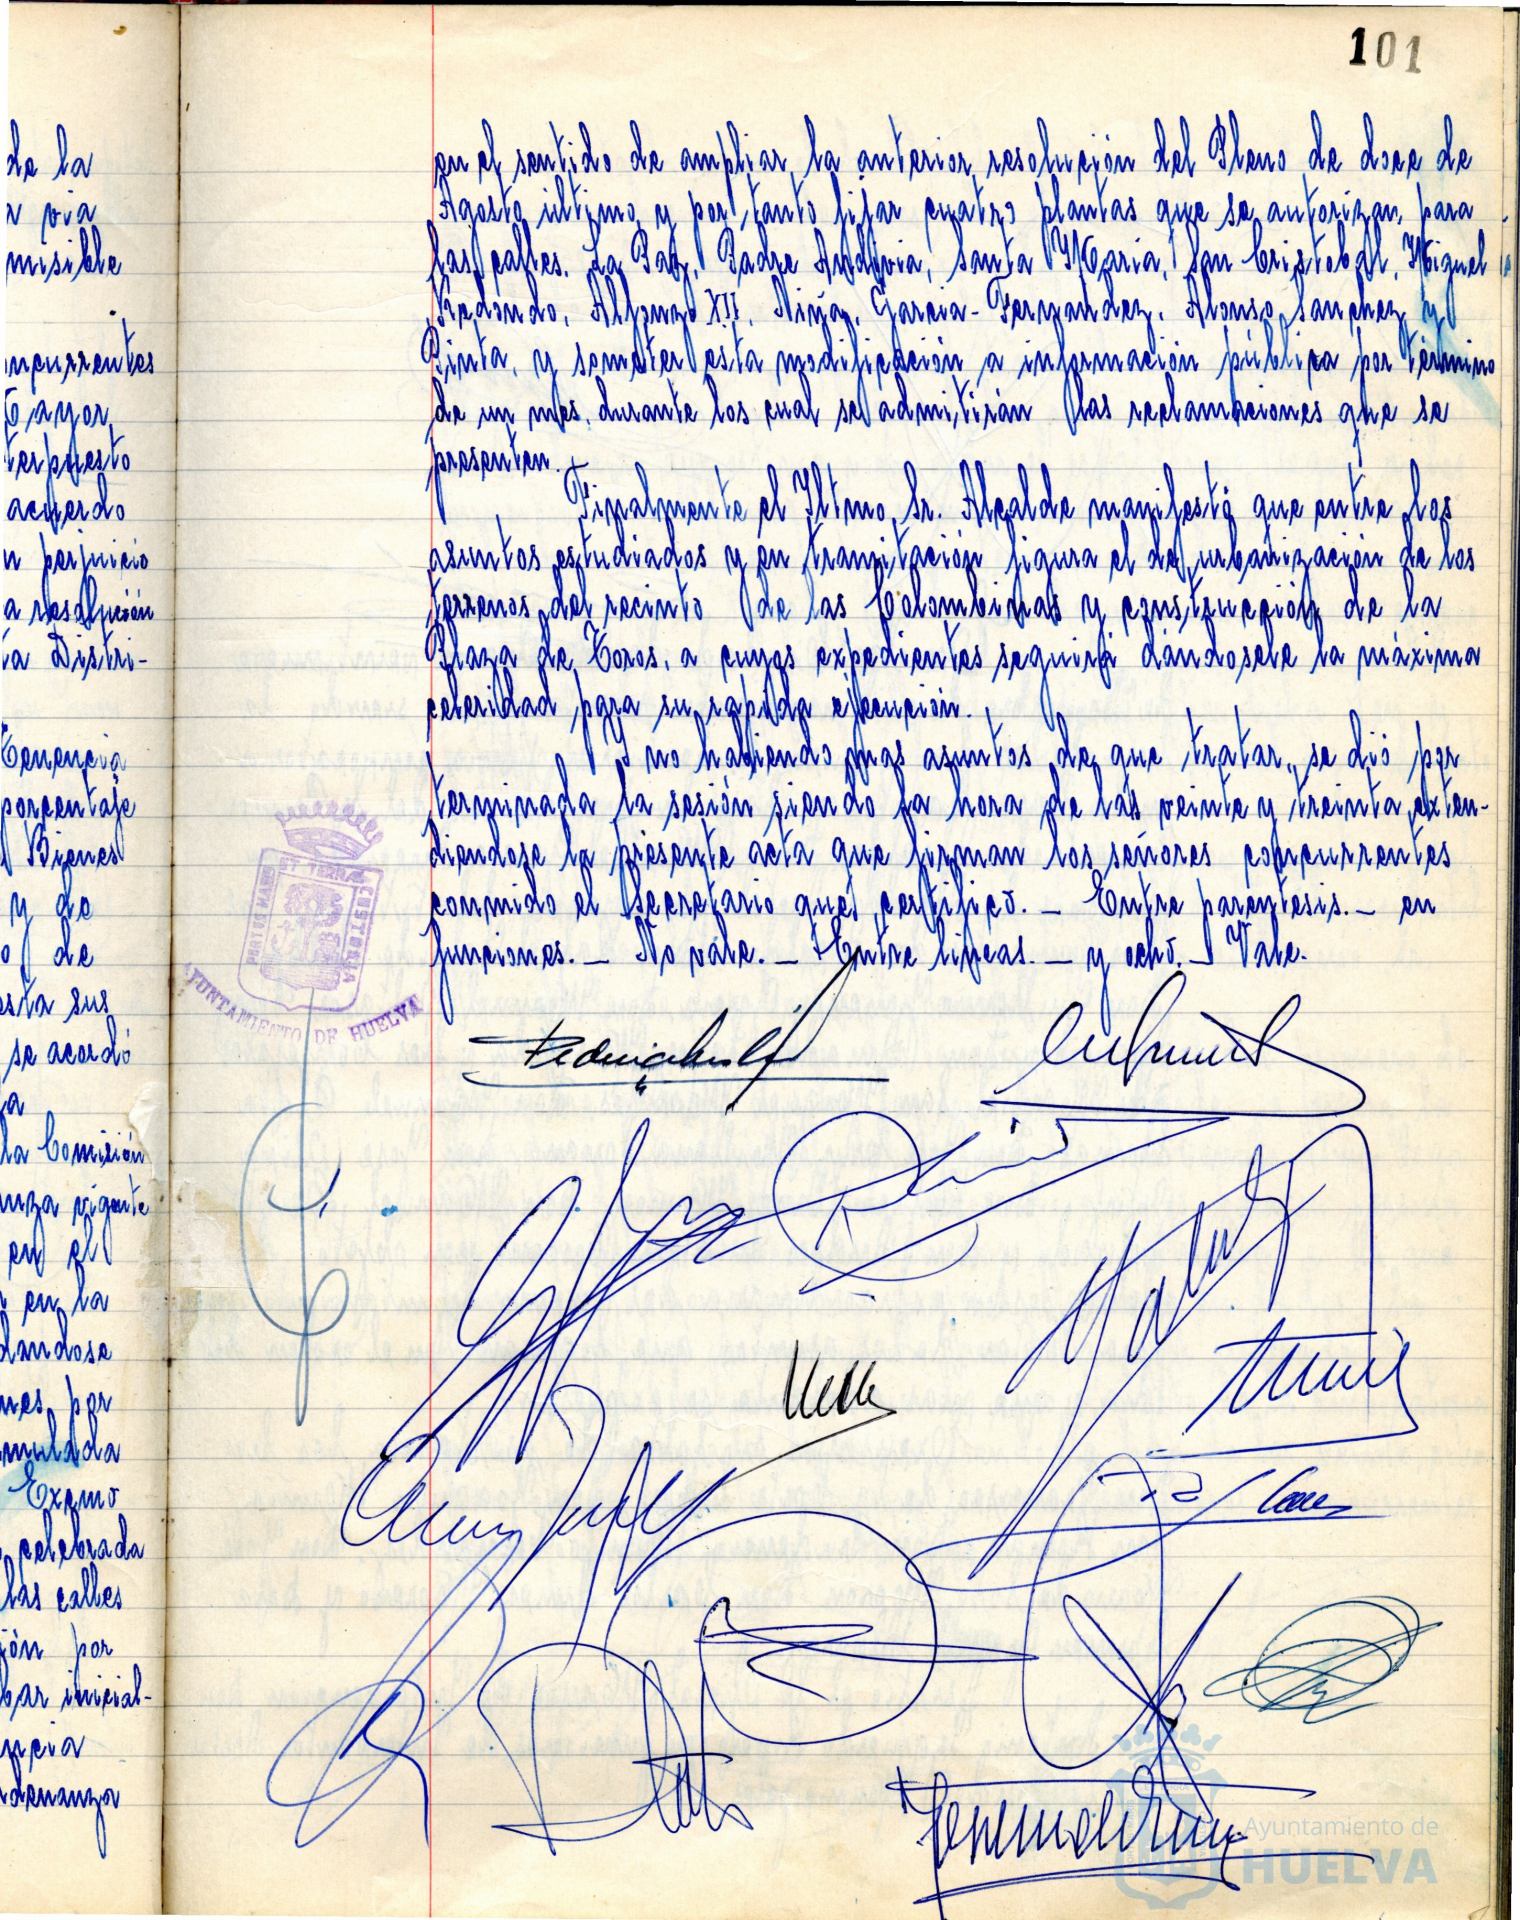 101
de la
via
misible
ncurrentes
ayor,
terpuesto
acuerdo
n perjuicio
a resolución
ta Distri-
Tenencia
porcentaje
Bienes
y de
o de
esta sus
se acordó
a
la Comisión
anza vigente
en el
en la
dandose
nes por
mulada
Excmo
celebrada
las calles
ión por
bar inicial-
ncia
denanza
en el sentido de ampliar la anterior resolución del Pleno de doce de
Agosto último y por tanto fijar cuatro plantas que se autorizan para
las calles. La Paz, Padre Andivia, Santa María, San Cristobal, Miguel
Redondo, Alfonzo XII, Niña, Garcia-Fernandez, Alonso Sanchez y
Pinta, y someter esta modificación a información pública por término
de un mes, durante los cual se admitirán las reclamaciones que se
presenten.
Finalmente el Iltmo, Sr. Alcalde manifestó que entre los
asuntos estudiados y en tramitación figura el de urbanización de los
terrenos del recinto de las Colombinas y construcción de la
Plaza de Toros, a cuyos expedientes seguirá dándosele la máxima
celeridad para su rapida ejecución.
Y no habiendo mas asuntos de que tratar, se dió por
terminada la sesión siendo la hora de las veinte y treinta, exten-
diendose la presente acta que firman los señores concurrentes
conmido el Secretario que certifico. - Entre parentesis. - en
funciones. - No vale. - Entre lineas. - y ocho. - Vale.
PORTUS MARIS ET TERRAE CUSTODIA
AYUNTAMIENTO DE HUELVA
Ayuntamiento de
HUELVA